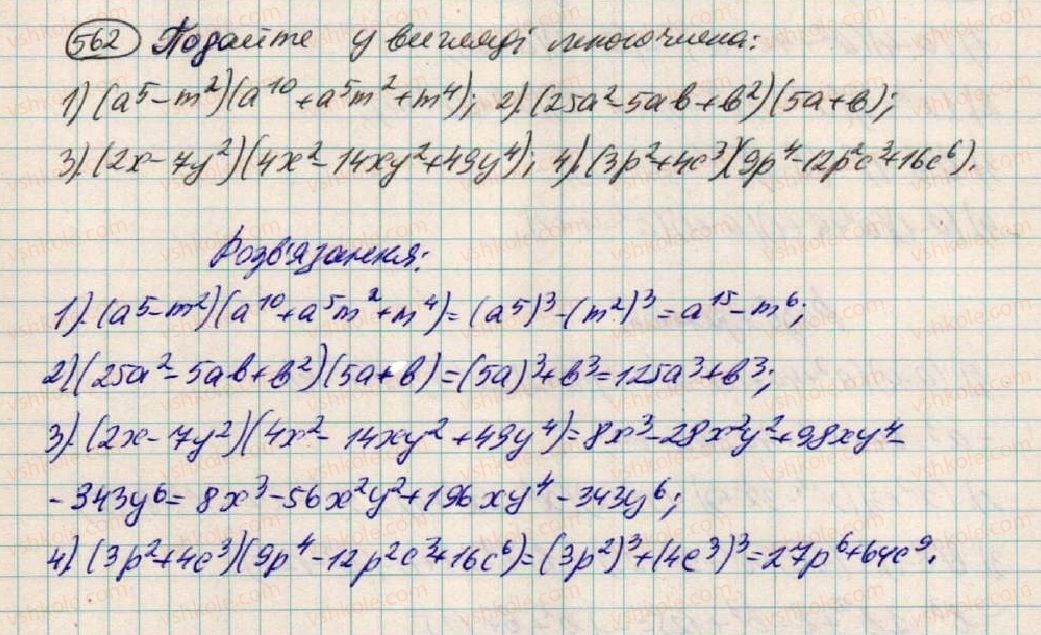 562 Подайте у вигляді многочлена:
1) (a⁵-m²)(a¹⁰+a⁵m²+m⁴); 2). (25a²-5ab+b²)(5a+b);
3). (2x-7y²)(4x²-14xy²+49y⁴); 4). (3p²+4c³)(9p⁴-12p²c³+16c⁶).
Розв'язання:
1). (a⁵-m²)(a¹⁰+a⁵m²+m⁴)=(a⁵)³-(m²)³=a¹⁵-m⁶;
2) (25a²-5ab+b²)(5a+b)=(5a)³+b³=125a³+b³;
3). (2x-7y²)(4x²-14xy²+49y⁴)=8x³-28x²y²+98xy⁴-
-343y⁶=8x³-56x²y²+196xy⁴-343y⁶;
4) (3p²+4c³)(9p⁴-12p²c³+16c⁶)=(3p²)³+(4c³)³=27p⁶+64c⁹.